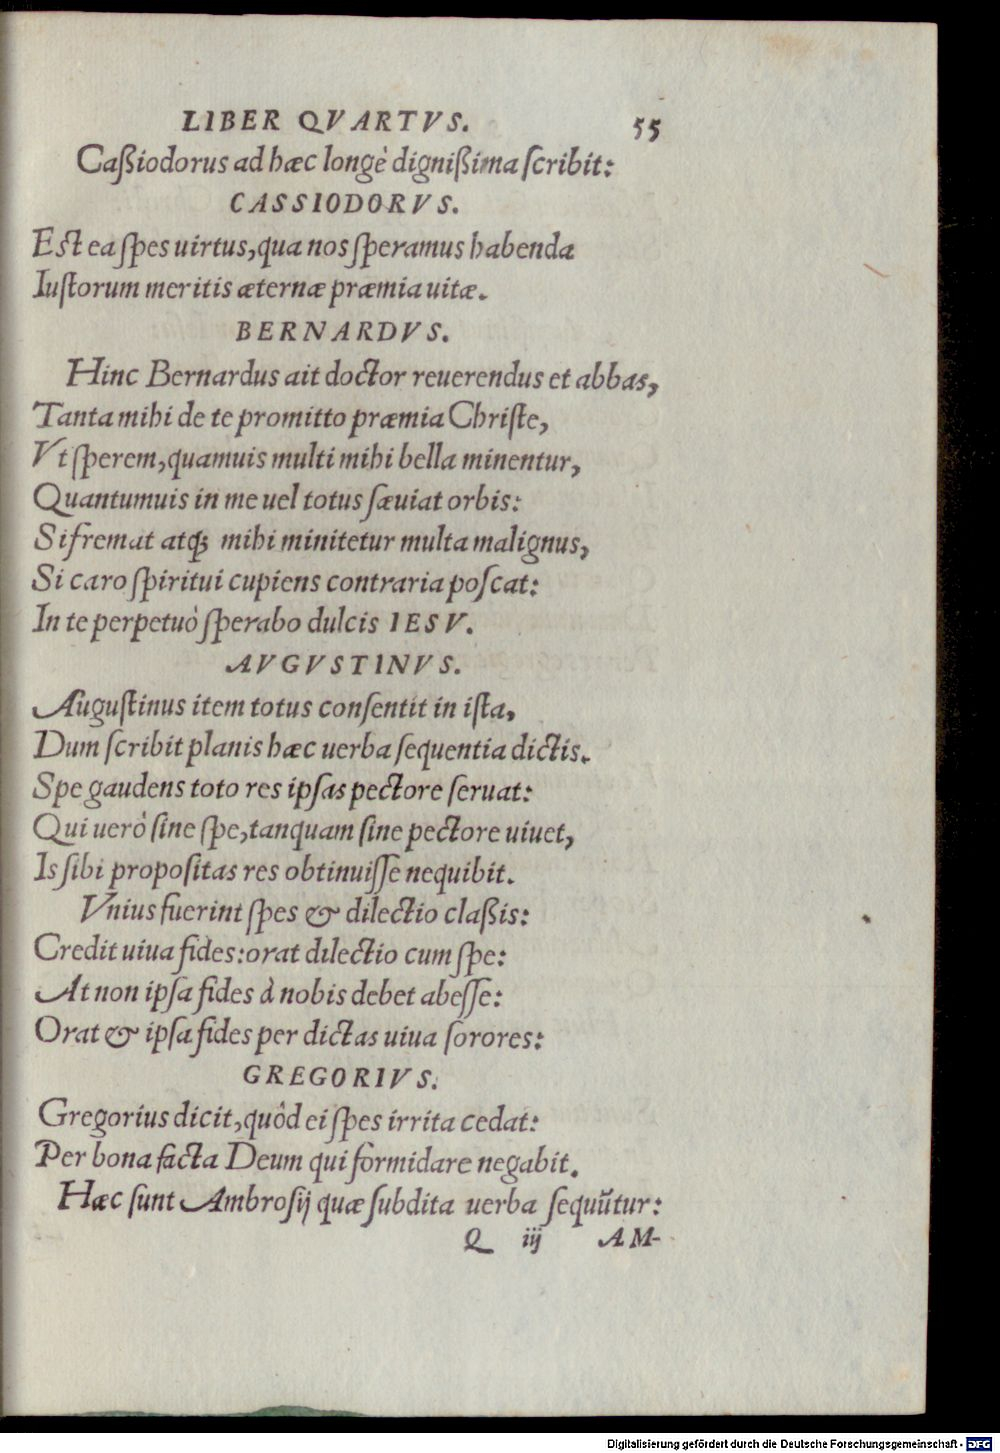 LIBER QVARTVS. 55
Caßiodorus ad hæc longè dignißima ſcribit:
CASSIODORVS.
Eſt ea ſpes uirtus, qua nos ſperamus habenda
Iuſtorum meritis æternæ præmia uitæ.
BERNARDVS.
Hinc Bernardus ait doctor reuerendus et abbas,
Tanta mihi de te promitto præmia Chriſte,
Vt ſperem, quamuis multi mihi bella minentur,
Quantumuis in me uel totus ſæuiat orbis:
Si fremat atq; mihi minitetur multa malignus,
Si caro ſpiritui cupiens contraria poſcat:
In te perpetuò ſperabo dulcis IESV.
AVGVSTINVS.
Auguſtinus item totus conſentit in iſta,
Dum ſcribit planis hæc uerba ſequentia dictis.
Spe gaudens toto res ipſas pectore ſeruat:
Qui uerò ſine ſpe, tanquam ſine pectore uiuet,
Is ſibi propoſitas res obtinuiſſe nequibit.
Vnius fuerint ſpes & dilectio claßis:
Credit uiua fides: orat dilectio cum ſpe:
At non ipſa fides à nobis debet abeſſe:
Orat & ipſa fides per dictas uiua ſorores:
GREGORIVS.
Gregorius dicit, quôd ei ſpes irrita cedat:
Per bona facta Deum qui formidare negabit.
Hæc ſunt Ambroſij quæ ſubdita uerba ſequũtur:
Q iij AM-
Digitalisierung gefördert durch die Deutsche Forschungsgemeinschaft - DFG